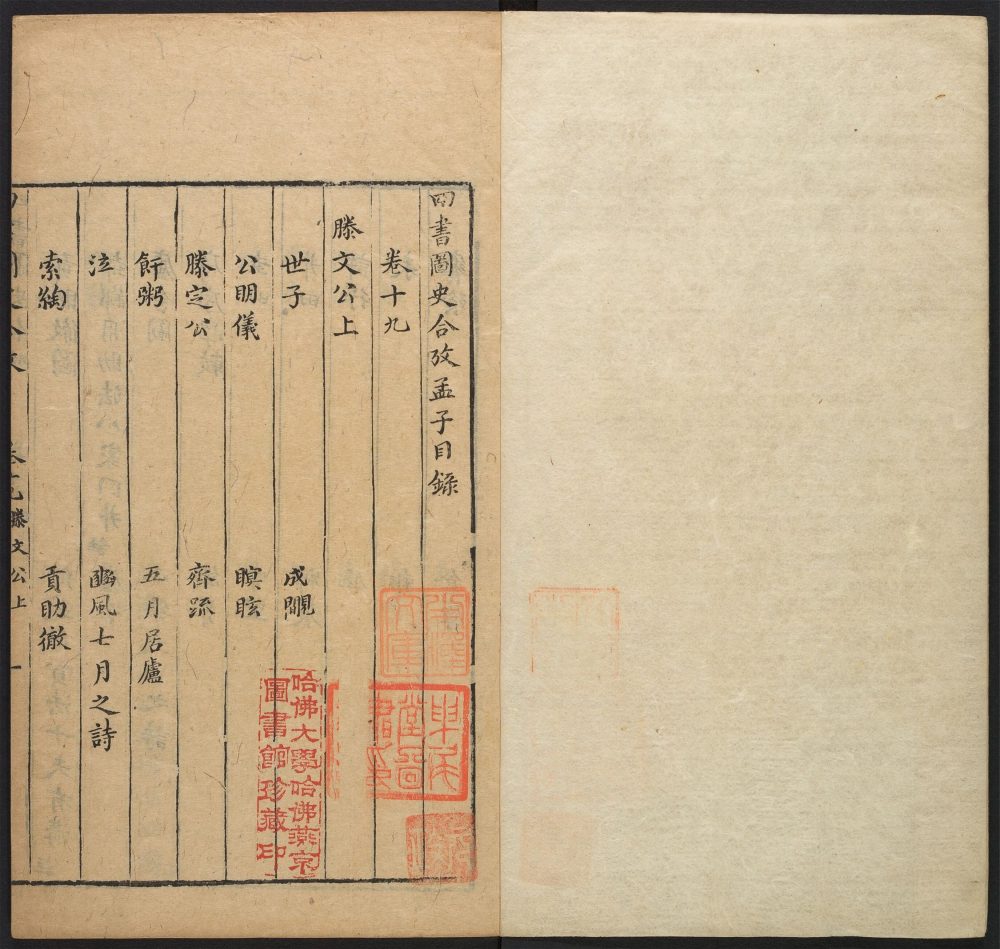 四書圖史合攷孟子目錄
卷十九
滕文公上
世子　成覵
公明儀　瞑眩
滕定公　齊疏
飦粥　五月居廬
泣　豳風七月之詩
索綯　貢助徹
滕文公上　一
哈佛大學哈佛燕京
圖書館珍藏印